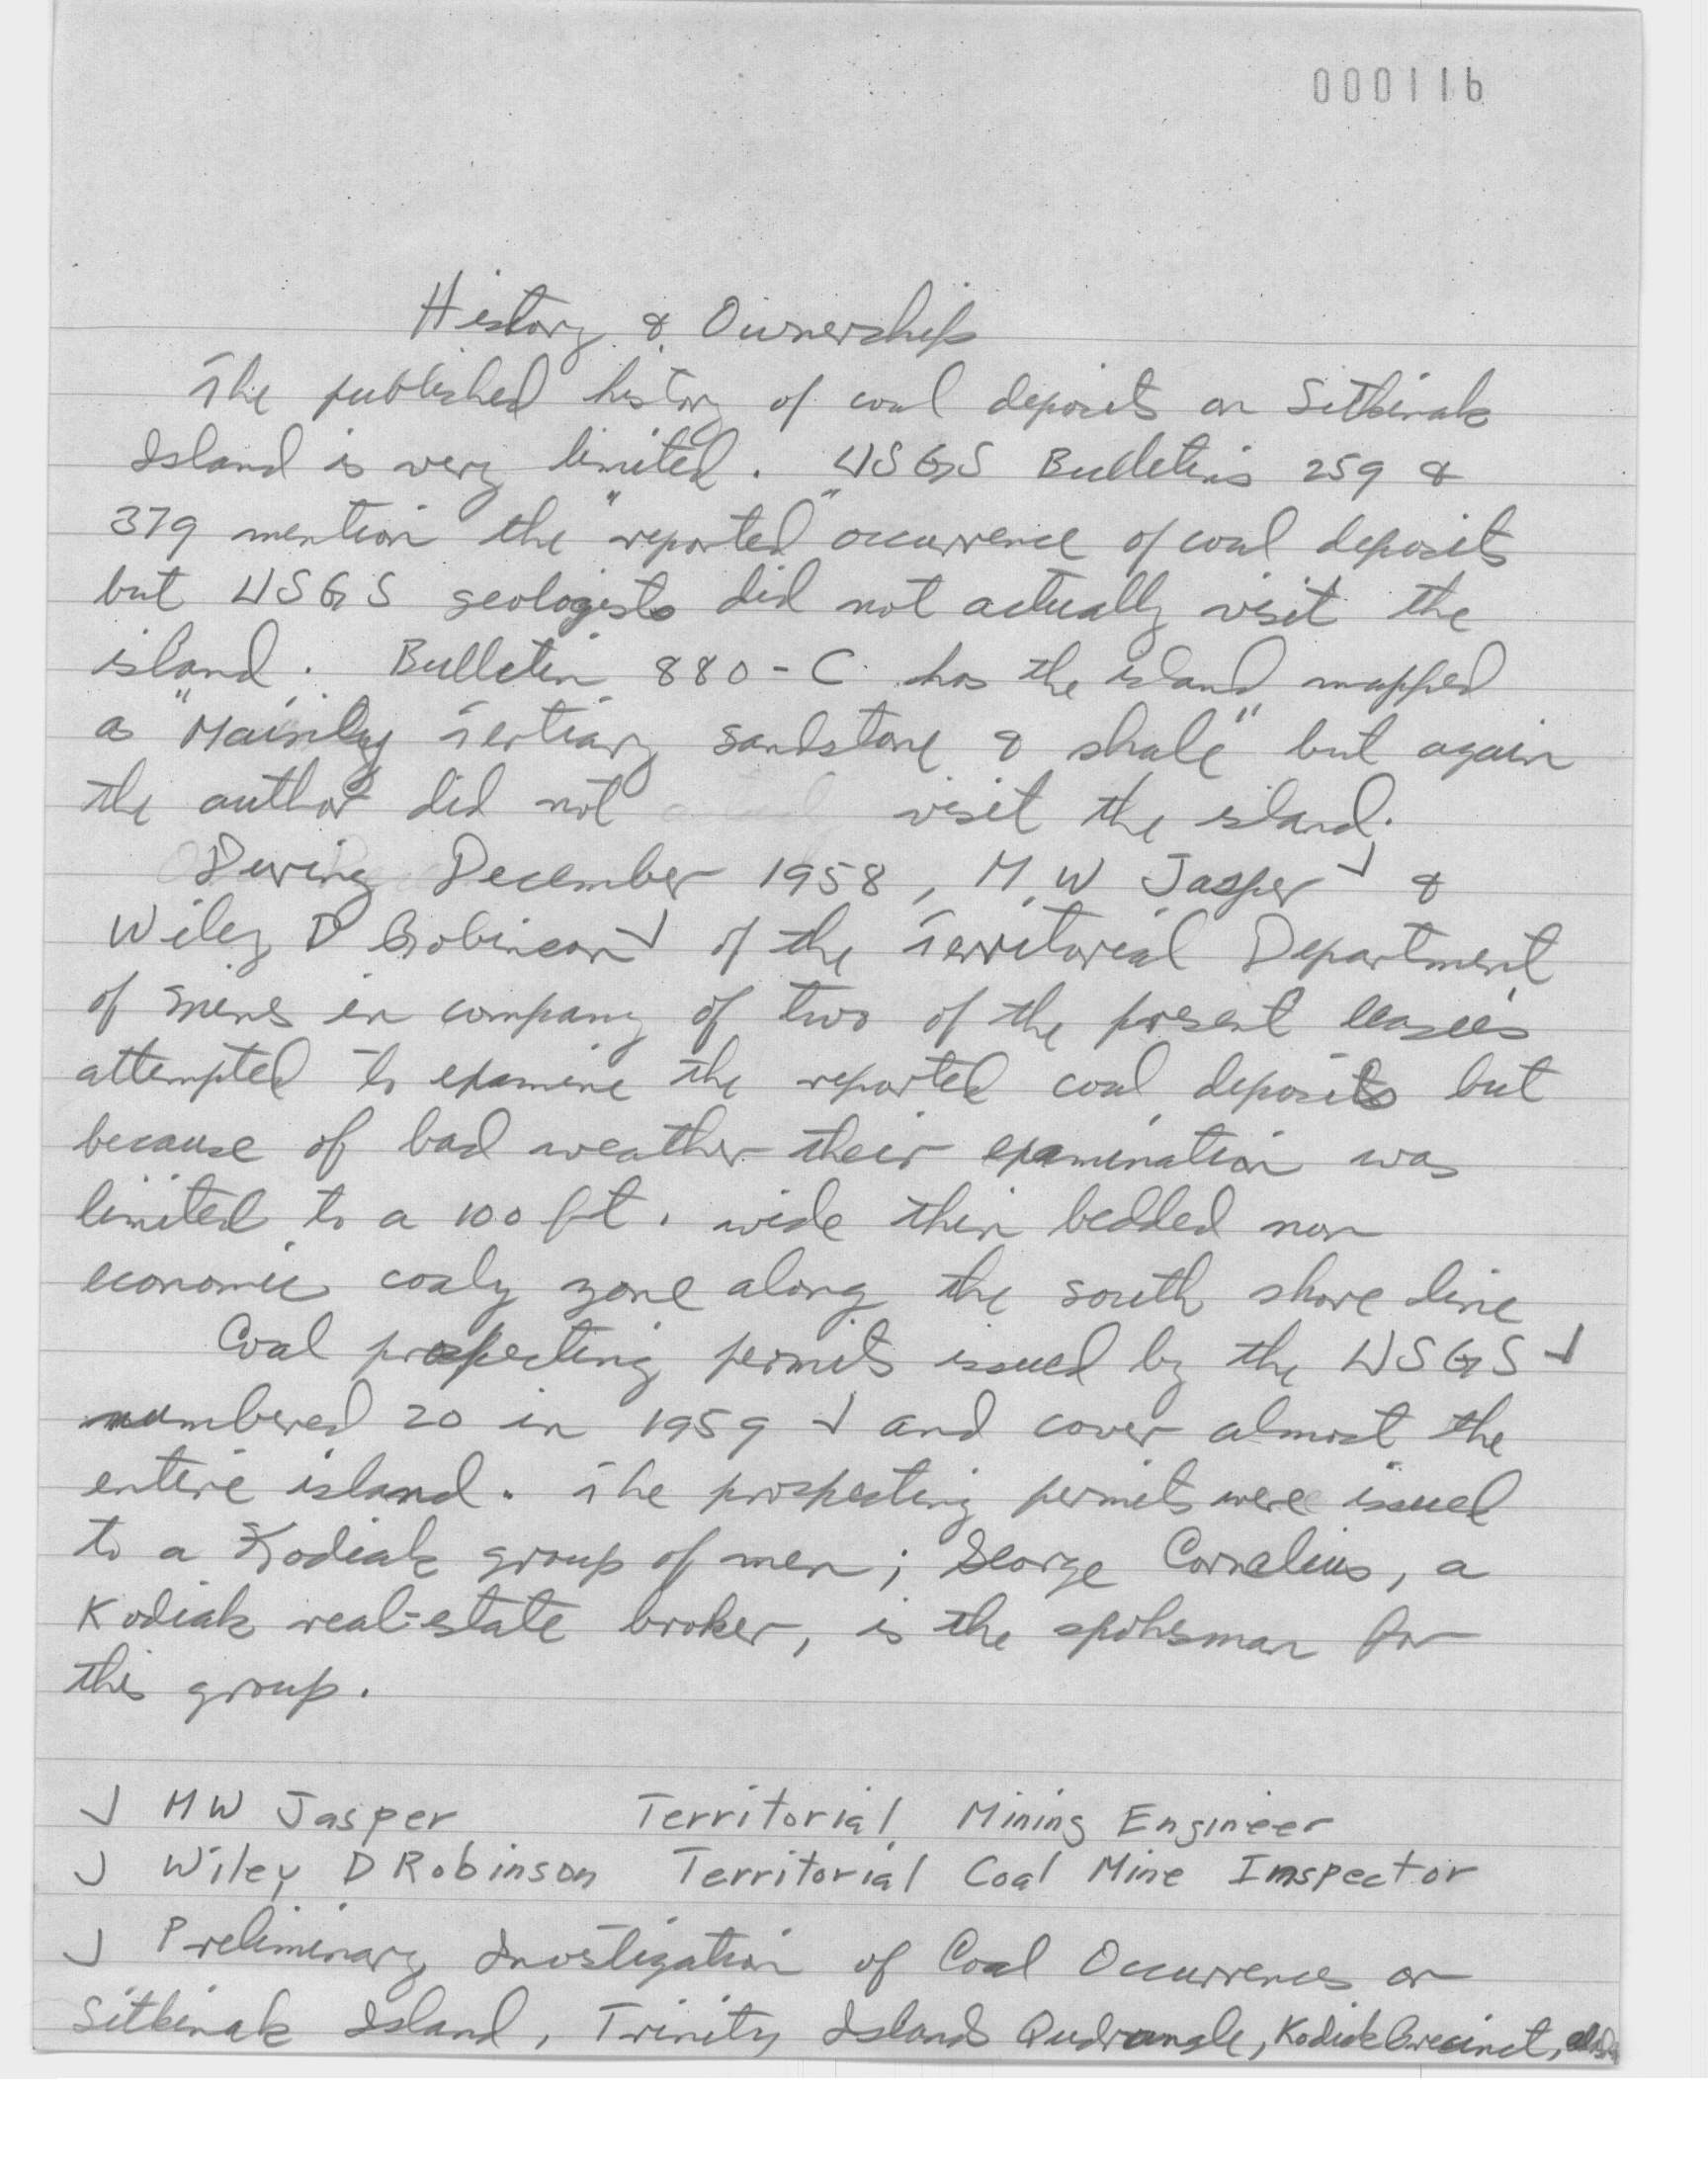 000116
History & Ownership
The published history of coal deposits on Sitkinak
Island is very limited. USGS Bulletins 259 &
379 mention the "reported" occurrence of coal deposits
but USGS geologists did not actually visit the
island. Bulletin 880-C has the island mapped
as "Mainly Tertiary sandstone & shale" but again
the author did not visit the island.
During December 1958, M.W Jasper √ &
Wiley D Robinson √ of the Territorial Department
of Mines in company of two of the present leasees
attempted to examine the reported coal deposits but
because of bad weather their examination was
limited to a 100 ft. wide thin bedded non
economic coaly zone along the south shore line
Coal prospecting permits issued by the USGS √
numbered 20 in 1959 √ and cover almost the
entire island. The prospecting permits were issued
to a Kodiak group of men; George Cornelius, a
Kodiak real-estate broker, is the spoksman for
this group.
√ MW Jasper Territorial Mining Engineer
√ Wiley D Robinson Territorial Coal Mine Inspector
√ Preliminary Investigation of Coal Occurrences on
Sitkinak Island, Trinity Islands Qudrangle, Kodiak Precinct,